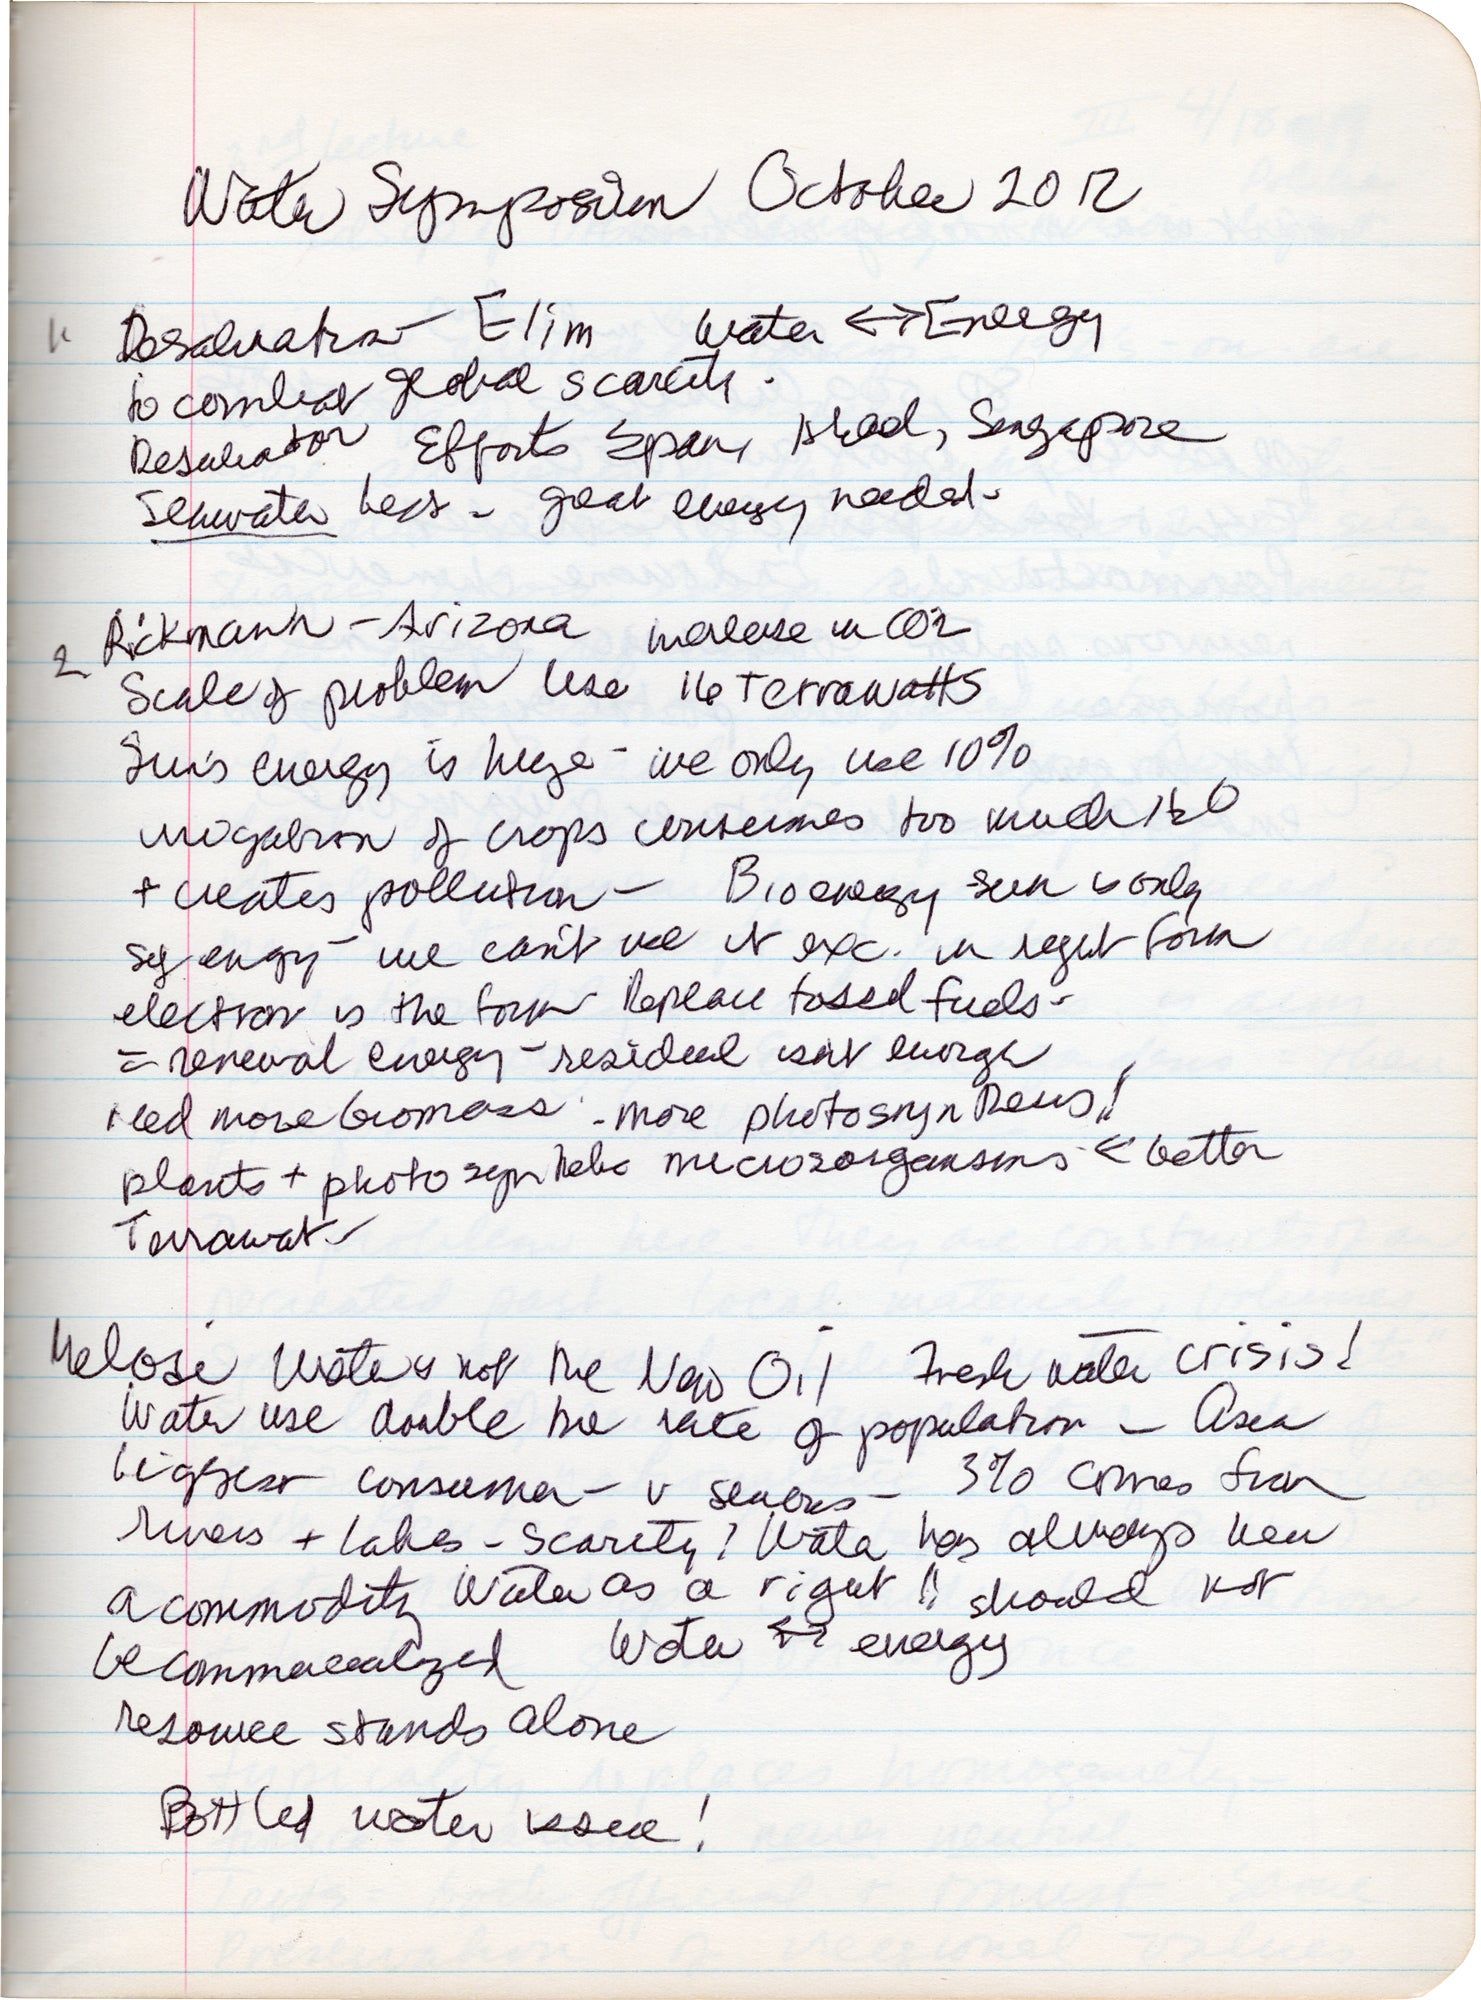 Water Symposium October 2012
1. Desalination - Elim Water <-> Energy
to combat global scarcity.
Desalination Efforts Spain, Singapore
Seawater - great energy needed -
2 Rickmann - Arizona increase in CO2
Scale of problem Use 16 Terrawatts
Sun's energy is huge - we only use 10%
irrigation of crops consumes too much H2O
+ creates pollution - Bioenergy sun is only
energy - we can't use it exc. in right form
electron is the form Replace fossil fuels -
= renewal energy - residual isn't enough
need more biomass - more photosynthesis!!
plants + photosynthetic microorganisms <- better
Terrawat -
Melosi Water is not the New Oil Fresh water crisis!
Water use double the rate of population - Asia
biggest consumer - v serious - 3% comes from
rivers + lakes - scarcity! Water has always been
a commodity Water as a right!! should not
be commercialized Water <-> energy
resource stands alone
Bottled water issue!